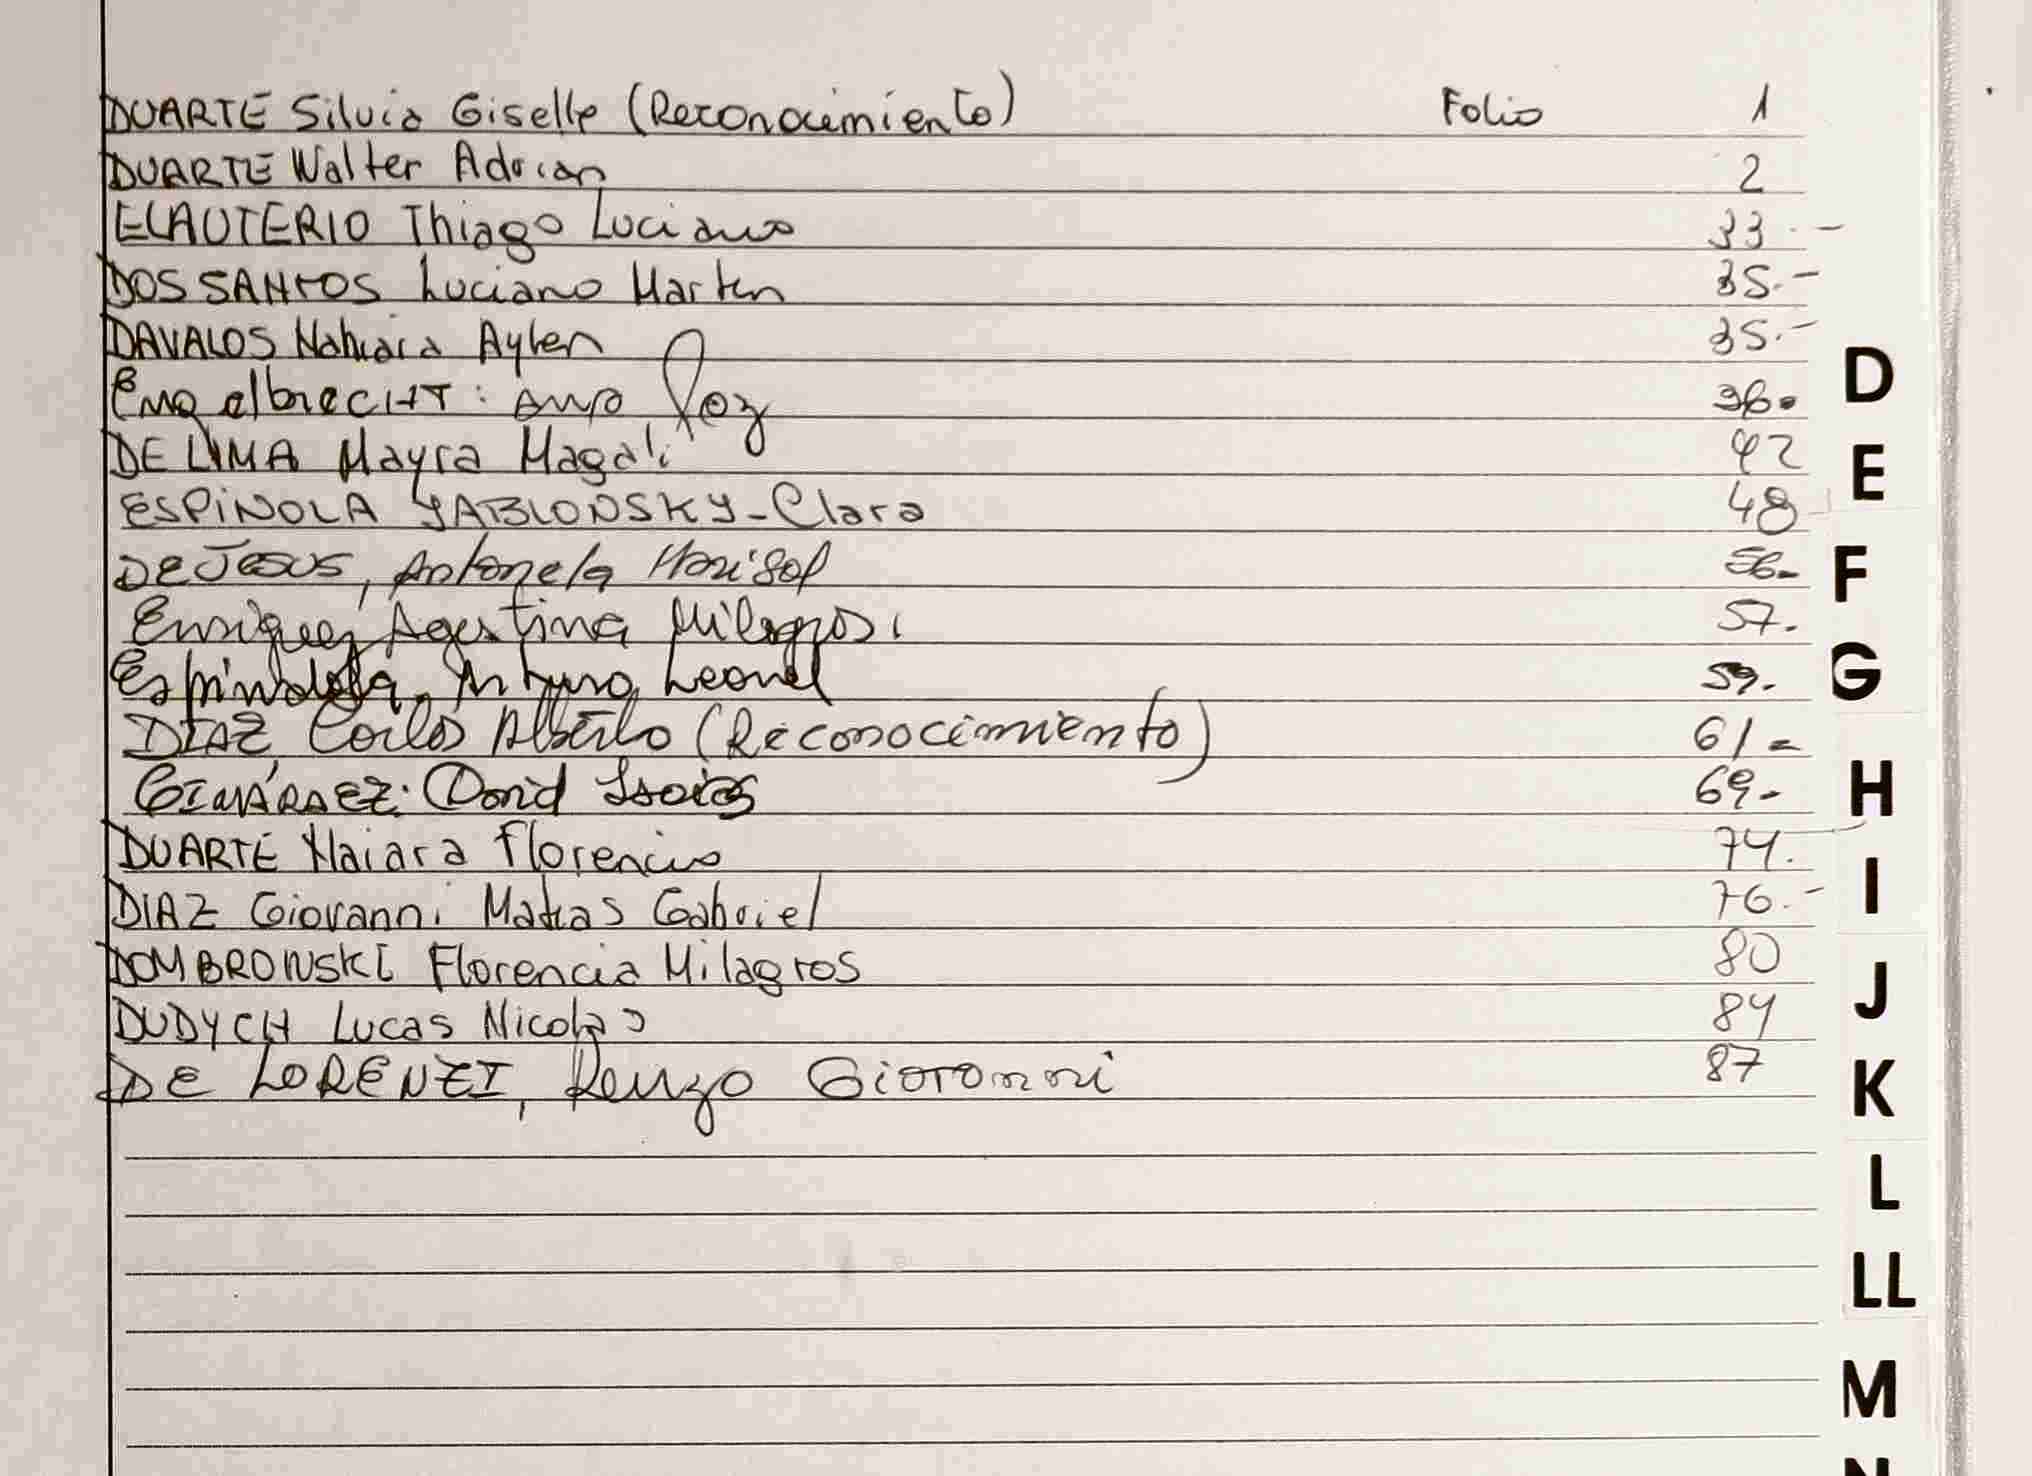 DUARTE Silvia Giselle (Reconocimiento) Folio 1
DUARTE Walter Adrian 2
ELAUTERIO Thiago Luciano 33.-
DOS SANTOS Luciano Martin 35.-
DAVALOS Nahiara Aylen 35.-
Engelbrecht: Ana Paz 36.
DE LIMA Mayra Magali 42
ESPINOLA YABLONSKY - Clara 48
De Jesus, Antonela Marisol 56-
Enriquez, Agustina Milagros. 57.
Espindola, Arturo Leonel 59.
DIAZ, Carlos Alberto (Reconocimiento) 61-
David Isaias 69-
DUARTE Naiara Florencia 74.
DIAZ Giovanni Matias Gabriel 76.-
DOMBROWSKI Florencia Milagros 80
DUDYCH Lucas Nicolas 84
DE LORENZI, Renzo Giovanni 87
D
E
F
G
H
I
J
K
L
LL
M